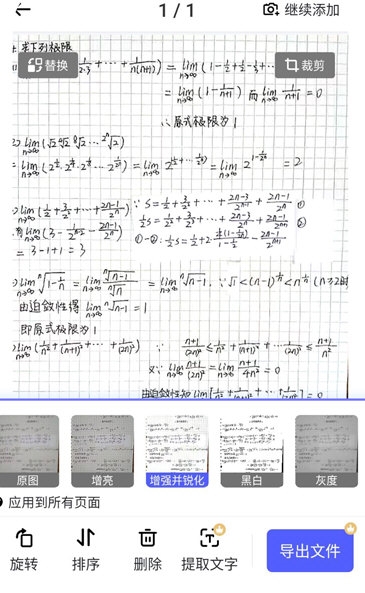 1 / 1
继续添加
1. 求下列极限
替换
裁剪
1/2·3 + ··· + 1/n(n+1)) = lim n→∞ (1 - 1/2 + 1/2 - 1/3 + ···
= lim n→∞ (1 - 1/n+1) 而 lim n→∞ 1/n+1 = 0
∴ 原式极限为 1
2) lim n→∞ (√2 ∜2 ⁸√2 ··· 2ⁿ√2)
= lim n→∞ (2^1/2 · 2^1/4 · 2^1/8 ··· 2^1/2ⁿ) = lim n→∞ 2^(1/2 + ··· + 1/2ⁿ) = lim n→∞ 2^(1 - 1/2ⁿ) = 2
lim n→∞ (1/2 + 3/2² + ··· + 2n-1/2ⁿ) ∵ S = 1/2 + 3/2² + ··· + 2n-3/2ⁿ⁻¹ + 2n-1/2ⁿ ①
1/2 S = 1/2² + 3/2³ + ··· + 2n-3/2ⁿ + 2n-1/2ⁿ⁺¹ ②
lim n→∞ (3 - 1/2ⁿ⁻² - 2n-1/2ⁿ)
①-②: 1/2 S = 1/2 + 2·
- 2n-1/2ⁿ⁺¹
= 3 - 1 + 1 = 3
lim n→∞ ⁿ√1 - 1/n = lim n→∞ ⁿ√n-1 / ⁿ√n = lim n→∞ ⁿ√n-1, ∵ √1 < (n-1)^1/n < n^1/n (n≥2时
由迫敛性得 lim n→∞ ⁿ√n-1 = 1
即原式极限为 1
lim n→∞ (1/n² + 1/(n+1)² + ··· + 1/(2n)²) ∵ n+1/(2n)² ≤ 1/n² + 1/(n+1)² + ··· 1/(2n)² ≤ n+1/n²
又∵ lim n→∞ n+1/(2n)² = lim n→∞ n+1/4n² = 0
由迫敛性知 lim n→∞ [1/n² + 1/(n+1)² + ··· + 1/(2n)²] = 0
原图
增亮
增强并锐化
黑白
灰度
应用到所有页面
旋转
排序
删除
提取文字
导出文件